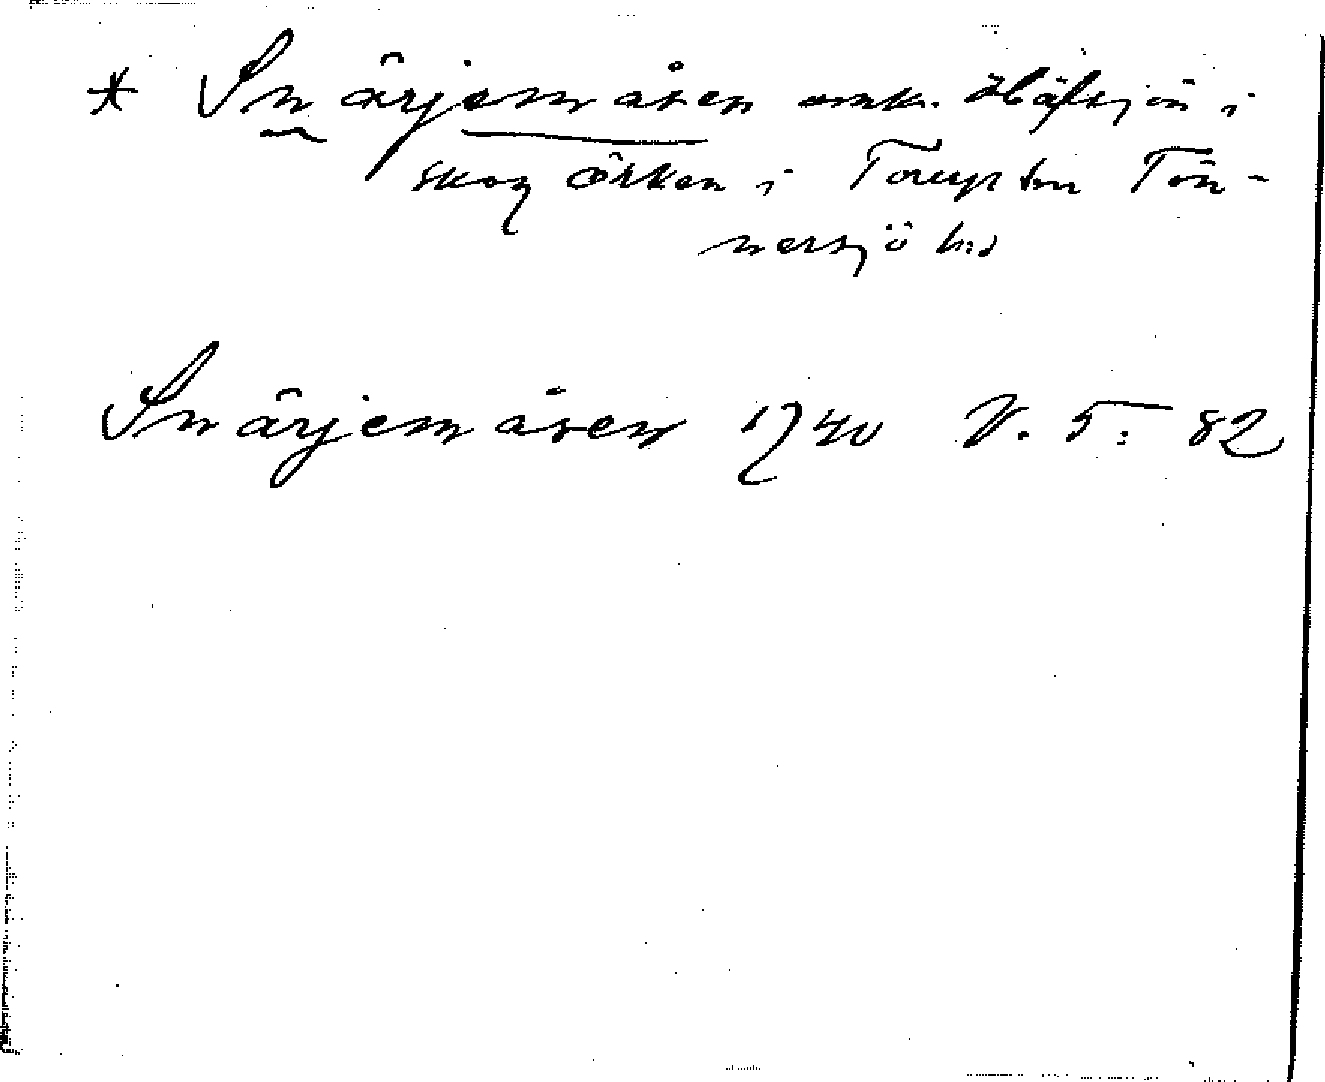 * Snärjemåsen omkr. Hälsjön i
skog Örken i Torups sn Tön-
nersjö hd
Snärjemåsen 1740 V. 5: 82